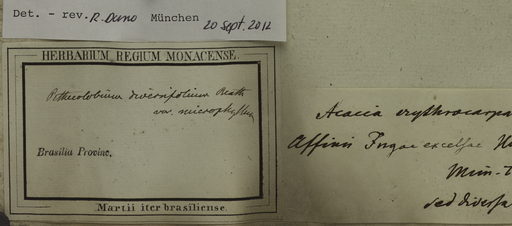 Det. - rev. R. Duno München 20 Sept. 2012
HERBARIUM REGIUM MONACENSE.
Pithecolobium diversifolium Benth
var. microphyllum
Brasilia Provinc.
Martii iter brasiliense.
Acacia erythrocarpa
Affinis Ingae excelsae
sed diversa